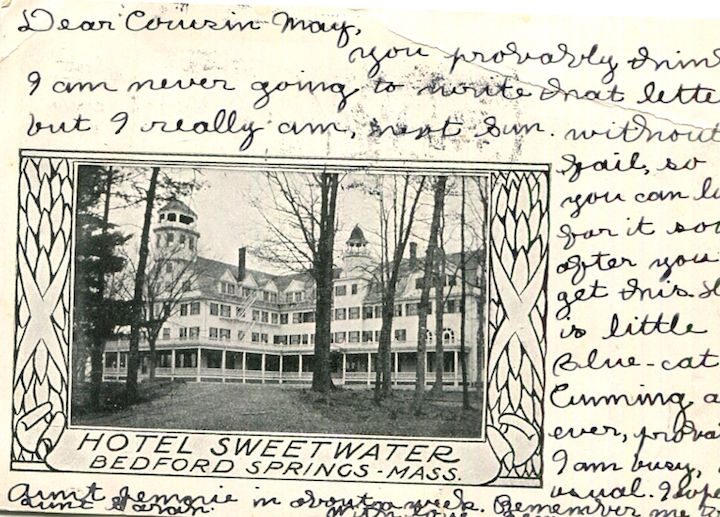 Dear Cousin May,
you probably think
I am never going to write that lette
but I really am, next Sun. without
fail, so
you can lo
for it soo
after you
get this.
is little
Blue-cat
Cunning a
ever, proba
I am busy,
usual. I hope
HOTEL SWEETWATER
BEDFORD SPRINGS-MASS.
Aunt Jennie in about a week. Remember me to
Aunt Sarah. With love